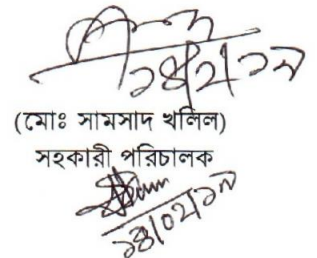 ১৪/২/১৯
(মোঃ সামসাদ খলিল)
সহকারী পরিচালক
১৪/০২/১৯